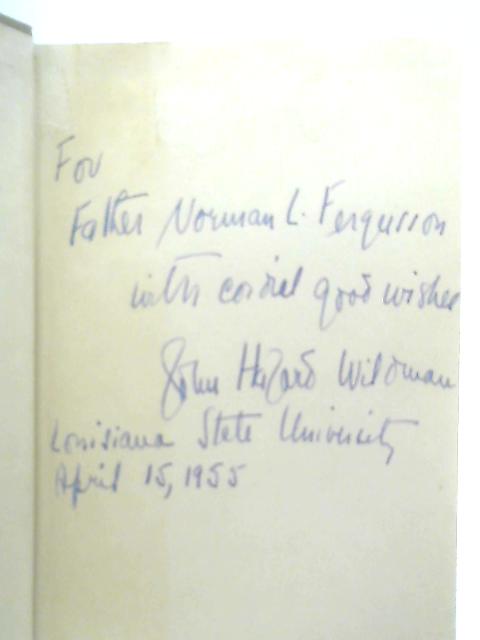 For
Father Norman L. Fergusson
with cordial good wishes
John Hazard Wildman
Louisiana State University
April 15, 1955